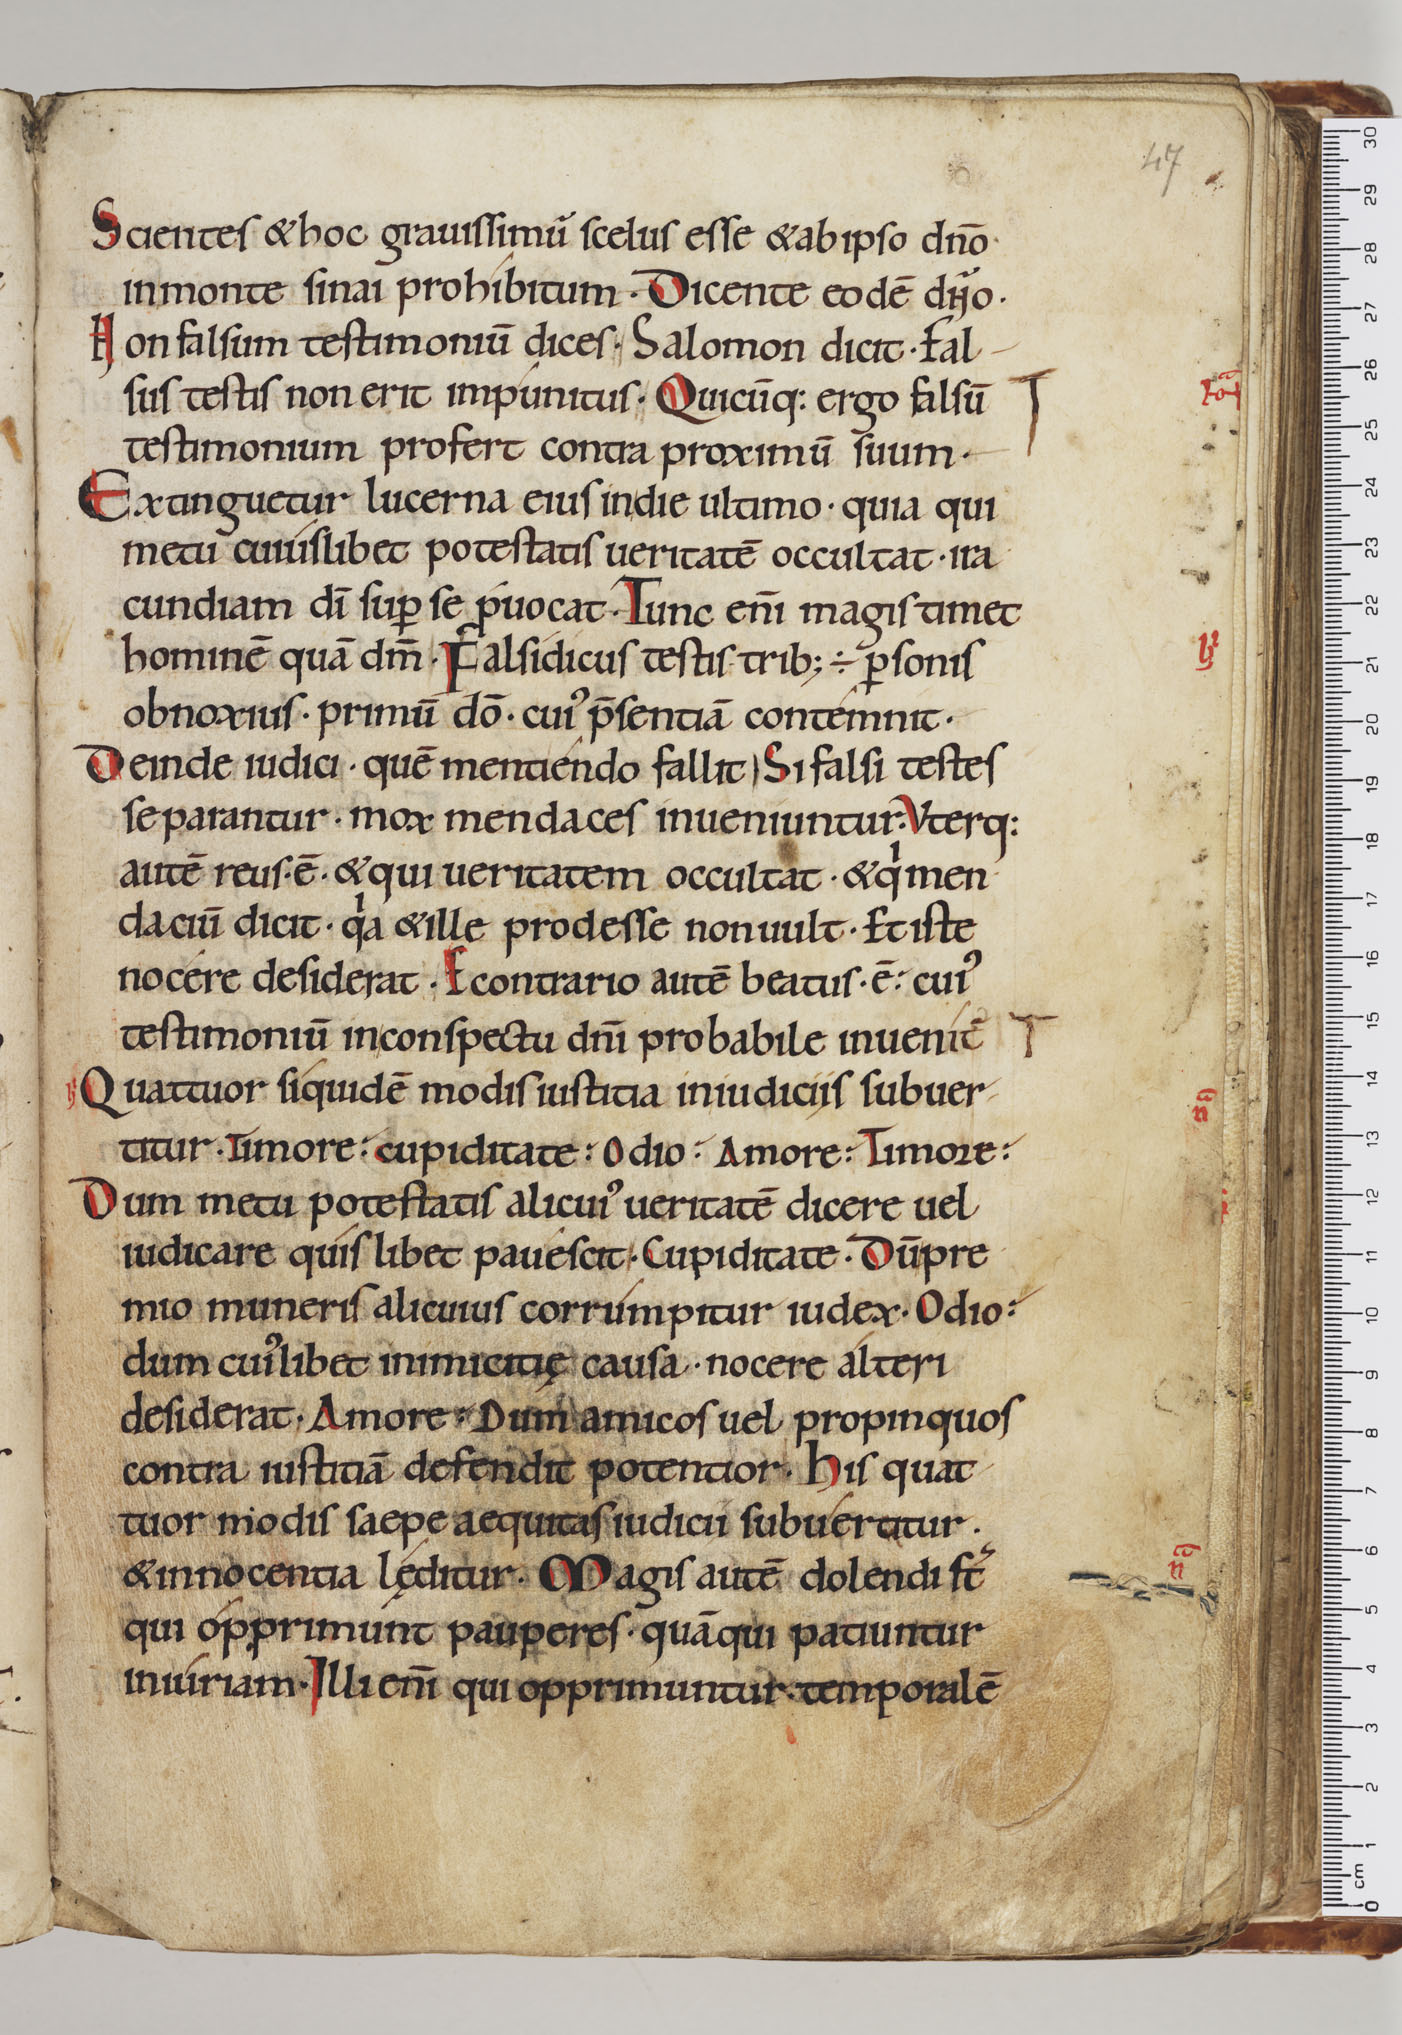 47
Scientes & hoc grauissimũ scelus esse & ab ipso dño
in monte sinai prohibitum. Dicente eodē
Non falsum testimoniū dices. Salomon dicit. Fal
sus testis non erit impunitus. Quicūq: ergo falsū
testimonium profert contra proximū suum.
Extinguetur lucerna eius in die ultimo. quia qui
metu cuiuslibet potestatis ueritatē occultat. ira
cundiam dī sup̱ se puocat. Tunc em̄ magis timet
hominē quā dm̄. Falsidicus testis trib; ÷ p̱sonis
obnoxius. primū dō. cui᾽ p̄sentiā contemnit.
Deinde iudici. quē mentiendo fallit. Si falsi testes
separantur. mox mendaces inueniuntur. Vterq:
autē reus. ē. & qui ueritatem occultat. & qͥ men
daciū dicit. qͥa & ille prodesse non uult. Et iste
nocere desiderat. Econtrario autē beatus. ē: cui᾽
testimoniū in conspectu dn̄i probabile inuenit̄
Quattuor siquidē modis iustitia in iudiciis subuer
titur. Timore: cupiditate: Odio: Amore: Timore:
Dum metu potestatis alicui᾽ ueritatē dicere uel
iudicare quislibet pauescit. Cupiditate. Dū pre
mio muneris alicuius corrumpitur iudex. Odio:
dum cui᾽libet inimicitię causa. nocere alteri
desiderat. Amore: Dum amicos uel propinquos
contra iustitiā defendit potentior. His quat
tuor modis saepe aequitas iudicii subuertitur.
& innocentia lęditur. Magis autē dolendi st̄
qui opprimunt pauperes. quā qui patiuntur
iniuriam. Illi em̄ qui opprimuntur. temporalē
cm 0 1 2 3 4 5 6 7 8 9 10 11 12 13 14 15 16 17 18 19 20 21 22 23 24 25 26 27 28 29 30